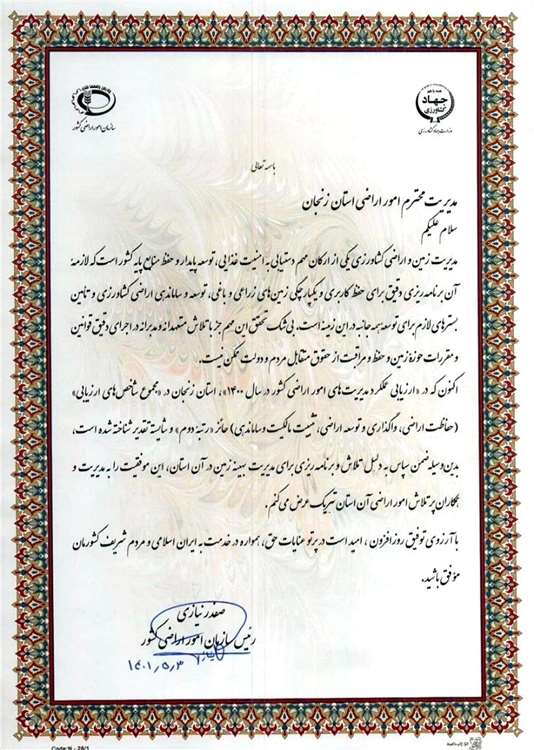 جهاد
کشاورزی
وزارت جهاد کشاورزی
سازمان امور اراضی کشور
باسمه تعالی
مدیریت محترم امور اراضی استان زنجان
سلام علیکم
مدیریت زمین و اراضی کشاورزی یکی از ارکان مهم دستیابی به امنیت غذایی، توسعه پایدار و حفظ منابع پایه کشور است که لازمه
آن برنامه ریزی دقیق برای حفظ کاربری و یکپارچگی زمین های زراعی و باغی، توسعه و ساماندهی اراضی کشاورزی و تامین
بسترهای لازم برای توسعه همه جانبه در این زمینه است. بی شک تحقق این مهم جز با تلاش متعهدانه و مدبرانه در اجرای دقیق قوانین
و مقررات حوزه زمین و حفظ و مراقبت از حقوق متقابل مردم و دولت ممکن نیست.
اکنون که در «ارزیابی عملکرد مدیریت های امور اراضی کشور در سال ۱۴۰۰»، استان زنجان در «مجموع شاخص های ارزیابی»
(حفاظت اراضی، واگذاری و توسعه اراضی، تثبیت مالکیت و ساماندهی) حائز «رتبه دوم» و شایسته تقدیر شناخته شده است،
بدین وسیله ضمن سپاس به دلیل تلاش و برنامه ریزی برای مدیریت بهینه زمین در آن استان، این موفقیت را به مدیریت و
همکاران پر تلاش امور اراضی آن استان تبریک عرض می کنم.
با آرزوی توفیق روز افزون، امید است در پرتو عنایات حق، همواره در خدمت به ایران اسلامی و مردم شریف کشورمان
موفق باشید.
صفدر نیازی
رئیس سازمان امور اراضی کشور
۱۴۰۱٫۵٫۳
Code:N - 28/1